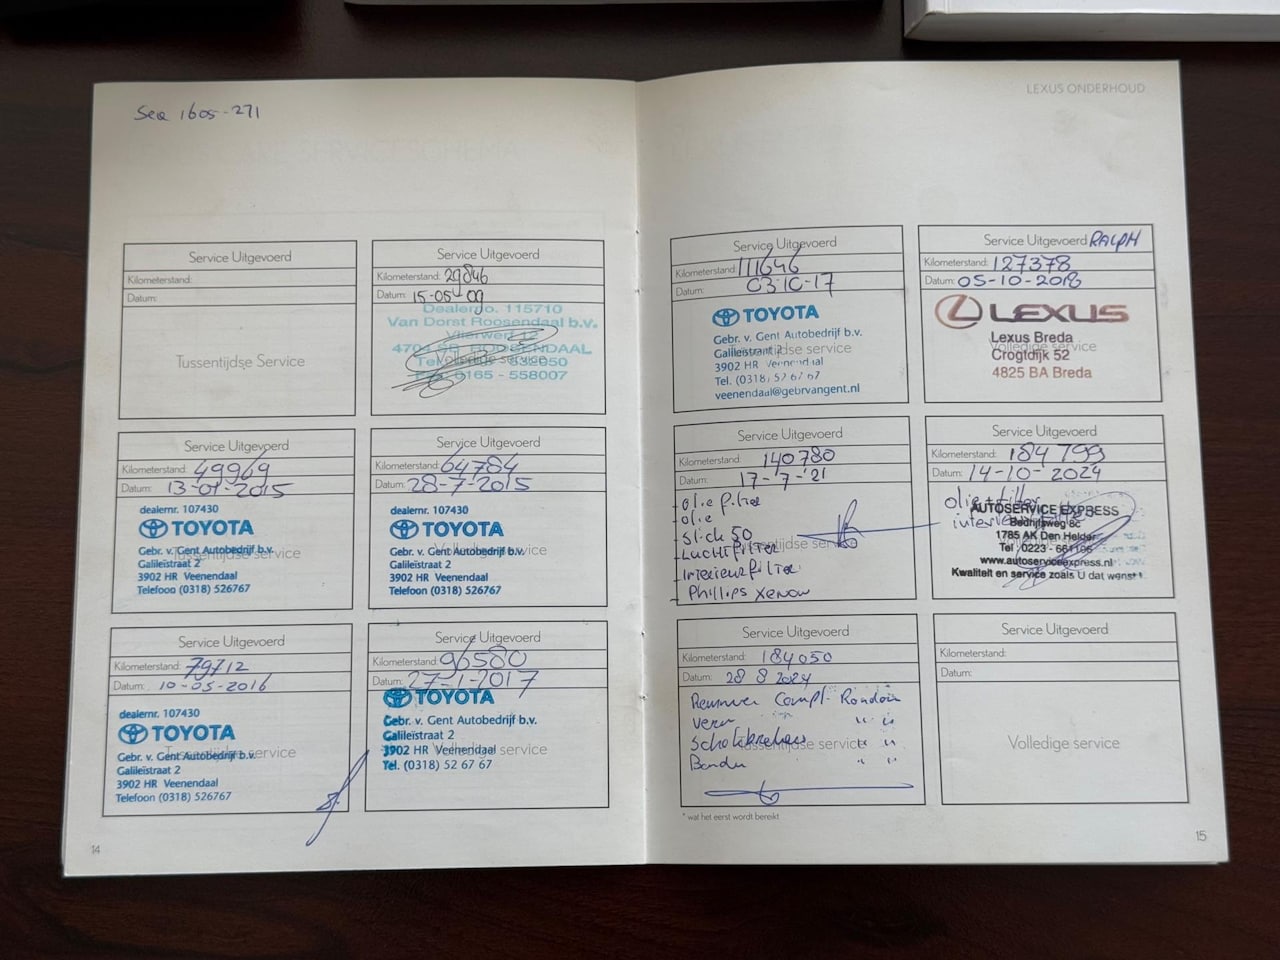 Sea 1605-271
Service Uitgevoerd
Kilometerstand:
Datum:
Tussentijdse Service
Service Uitgevoerd
Kilometerstand: 29846
Datum: 15-05-09
Dealerno. 115710
Van Dorst Roosendaal b.v.
ROOSENDAAL
Volledige service
0165 - 558007
Service Uitgevoerd
Kilometerstand: 49969
Datum: 13-01-2015
dealernr. 107430
TOYOTA
Gebr. v. Gent Autobedrijf b.v.
Tussentijdse service
Galileïstraat 2
3902 HR Veenendaal
Telefoon (0318) 526767
Service Uitgevoerd
Kilometerstand: 64784
Datum: 28-7-2015
dealernr. 107430
TOYOTA
Gebr. v. Gent Autobedrijf b.v.
Volledige service
Galileïstraat 2
3902 HR Veenendaal
Telefoon (0318) 526767
Service Uitgevoerd
Kilometerstand: 79712
Datum: 10-05-2016
dealernr. 107430
TOYOTA
Gebr. v. Gent Autobedrijf b.v.
Tussentijdse service
Galileïstraat 2
3902 HR Veenendaal
Telefoon (0318) 526767
Service Uitgevoerd
Kilometerstand: 96580
Datum: 27-1-2017
TOYOTA
Gebr. v. Gent Autobedrijf b.v.
Galileïstraat 2
3902 HR Veenendaal
Volledige service
Tel. (0318) 52 67 67
14
LEXUS ONDERHOUD
Service Uitgevoerd
Kilometerstand: 111646
Datum: 03-10-17
TOYOTA
Gebr. v. Gent Autobedrijf b.v.
Galileïstraat 2
Tussentijdse service
3902 HR Veenendaal
Tel. (0318) 52 67 67
veenendaal@gebrvangent.nl
Service Uitgevoerd RALPH
Kilometerstand: 127378
Datum: 05-10-2018
LEXUS
Lexus Breda
Volledige service
Crogtdijk 52
4825 BA Breda
Service Uitgevoerd
Kilometerstand: 140780
Datum: 17-7-'21
- olie filter
- olie
- Slick 50
- Luchtfilter
Tussentijdse service
- Interieurfilter
- Phillips Xenon
Service Uitgevoerd
Kilometerstand: 184 799
Datum: 14-10-2024
olie + filter
AUTOSERVICE EXPRESS
Bedrijfsweg 8c
1785 AK Den Helder
Tel : 0223 - 661196
www.autoserviceexpress.nl
Kwaliteit en service zoals U dat wenst !
Service Uitgevoerd
Kilometerstand: 184050
Datum: 28 8 2024
Remmen Compl. Rondom
Veren " "
Schokbrekers " "
Tussentijdse service
Banden " "
* wat het eerst wordt bereikt
Service Uitgevoerd
Kilometerstand:
Datum:
Volledige service
15